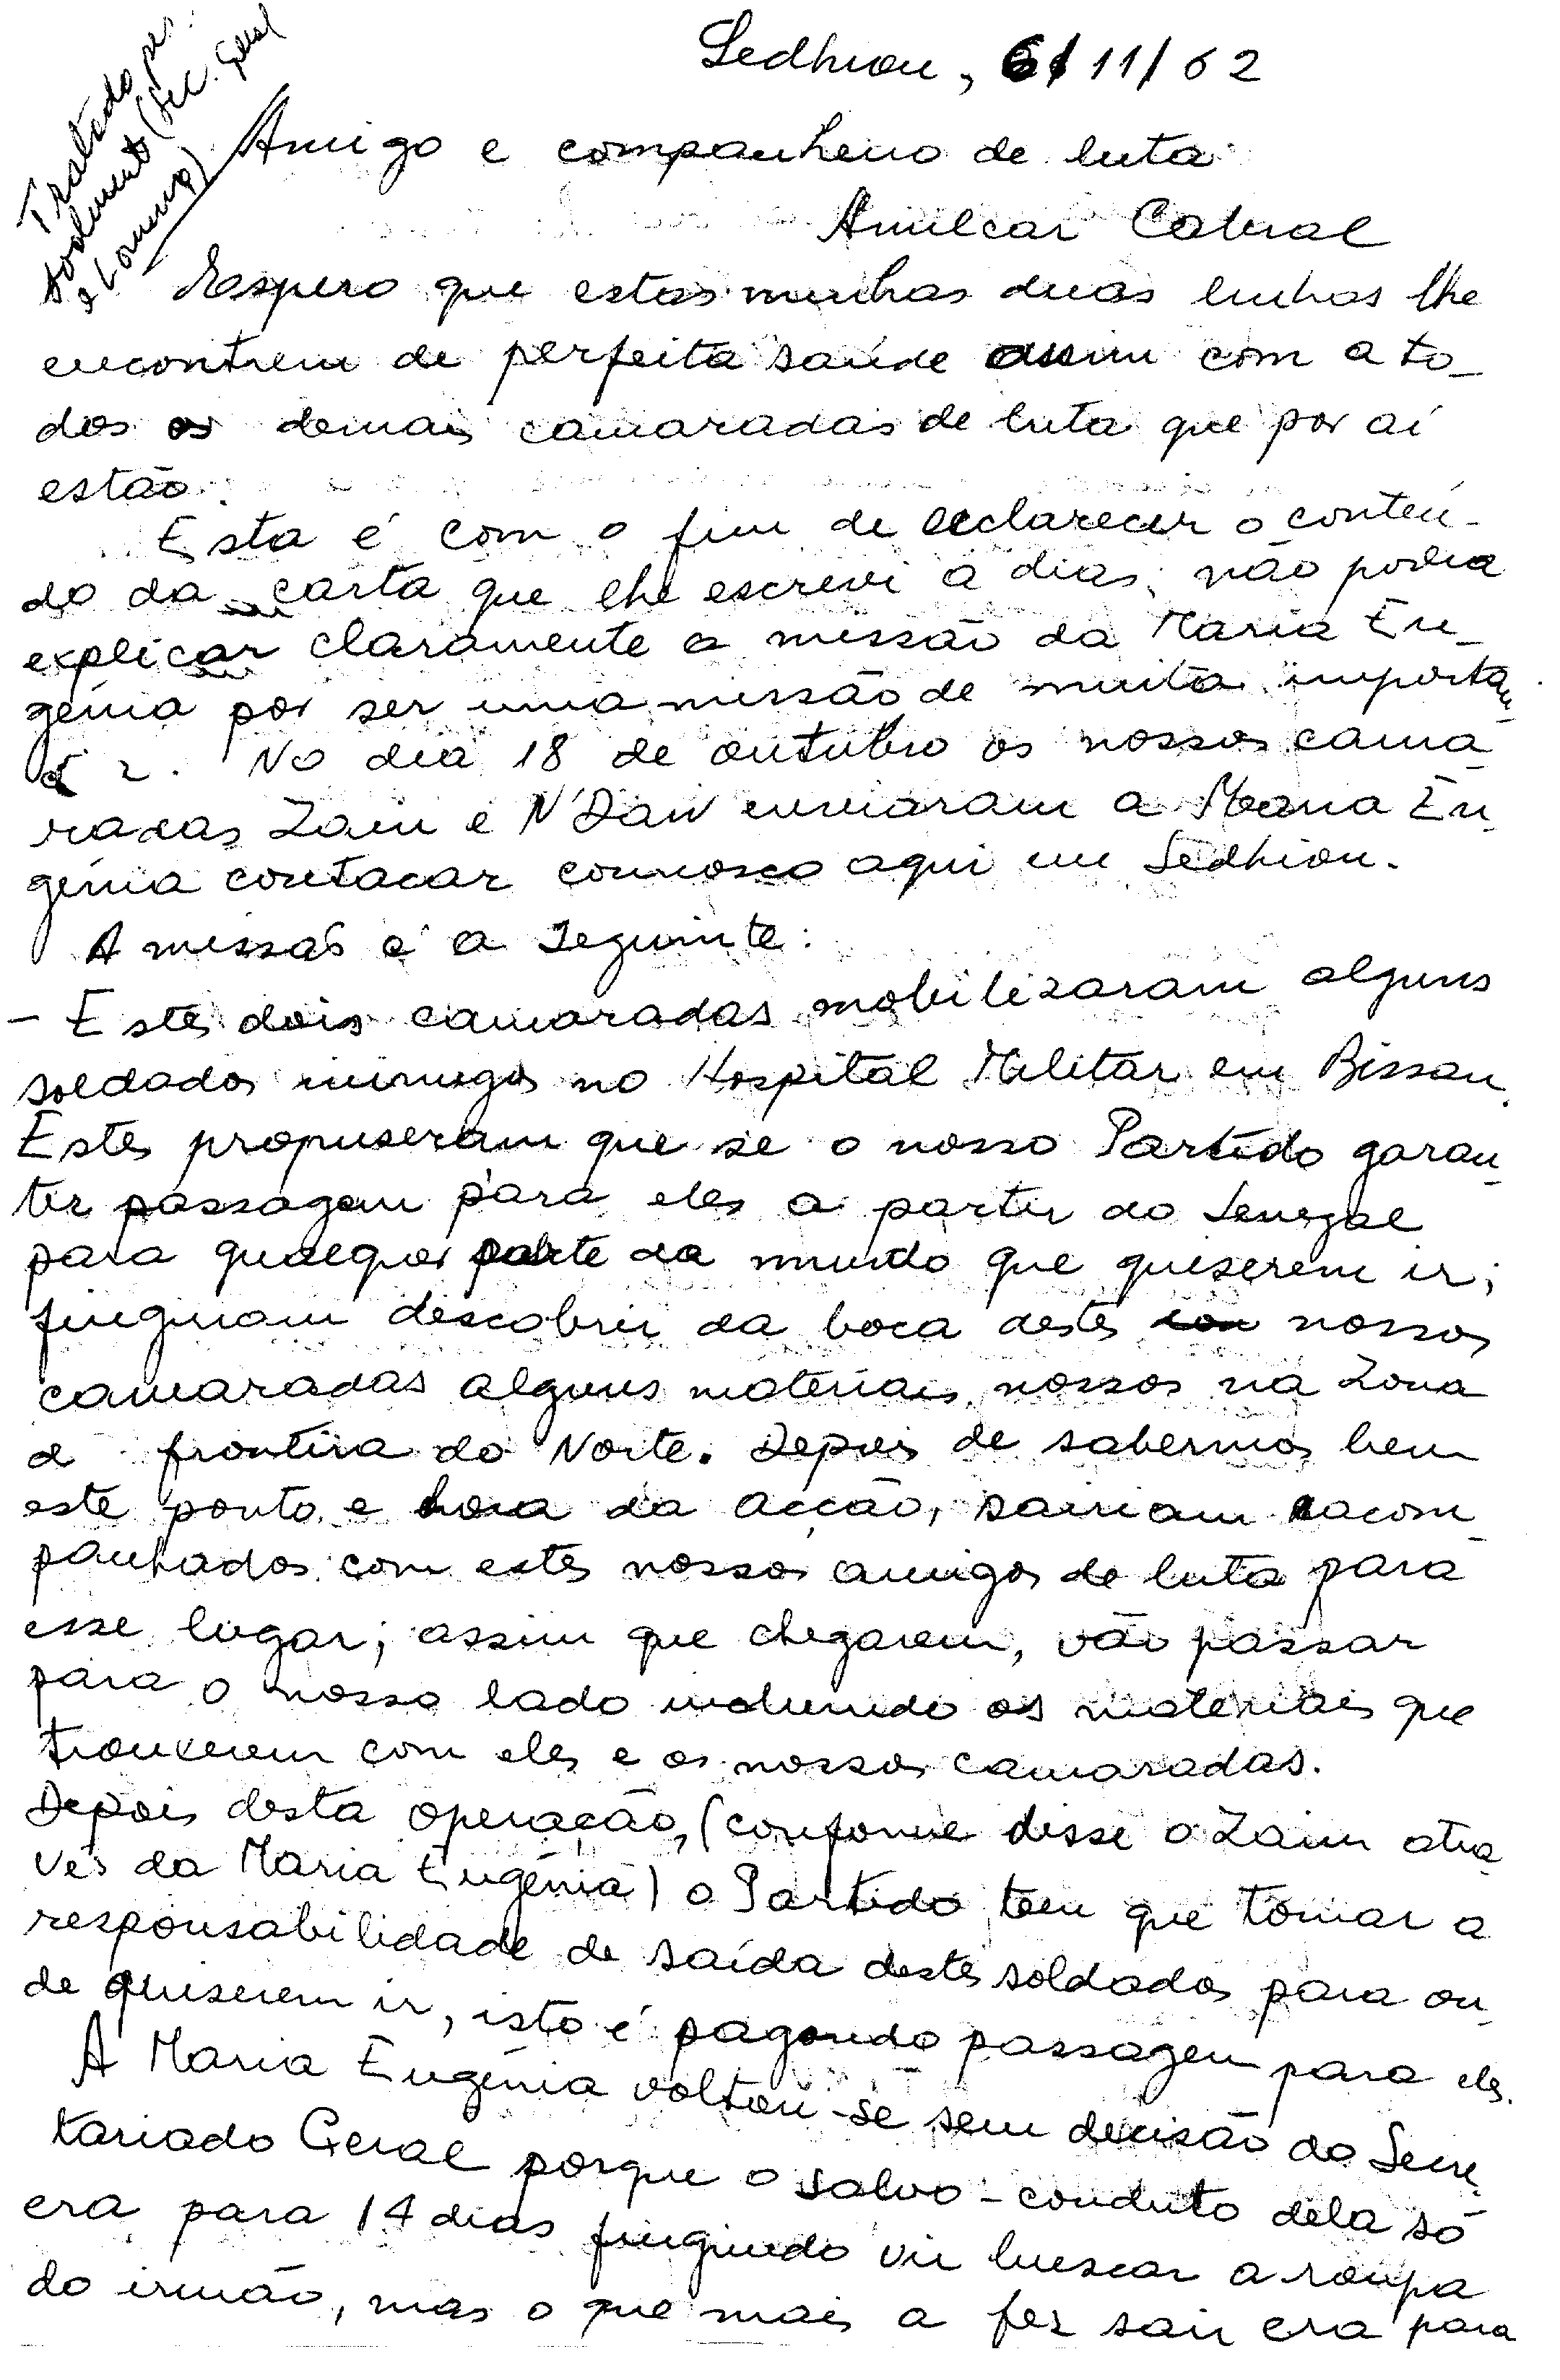 Tratado pes-
soalmente (Sec. Geral
e Lourenço)
Sedhiou, 6/11/62
Amigo e companheiro de luta
Amilcar Cabral
Espero que estas minhas duas linhas lhe
encontrem de perfeita saúde assim com a to-
dos os demais camaradas de luta que por aí
estão.
Esta é com o fim de esclarecer o conteú-
do da carta que lhe escrevi à dias; não podia
explicar claramente a missão da Maria Eu-
génia por ser uma missão de muita importân-
No dia 18 de outubro os nossos cama-
radas Zain e N'Daw enviaram a Maria Eu-
génia contacar connosco aqui em Sedhiou.
A missão é a seguinte:
- Estes dois camaradas mobilizaram alguns
soldados inimigos no Hospital Militar em Bissau.
Estes propuseram que se o nosso Partido garan-
tir passagem para eles a partir do Senegal
para qualquer parte da mundo que quiserem ir;
fingiriam descobrir da boca destes nossos
camaradas alguns materiais nossos na Zona
d frontira do Norte. Depois de sabermos bem
este ponto e hora da acção, sairiam acom-
panhados com estes nossos amigos de luta para
esse lugar; assim que chegarem, vão passar
para o nosso lado incluindo os materiais que
trouxerem com eles e os nossos camaradas.
Depois desta operação, (conforme disse o Zain atra-
vés da Maria Eugénia) o Partido tem que tomar a
responsabilidade de saída destes soldados para on-
de quiserem ir, isto é pagando passagem para eles.
A Maria Eugénia voltou-se sem decisão do Secre-
tariado Geral porque o salvo-conduto dela só
era para 14 dias fingindo vir buscar a roupa
do irmão, mas o que mais a fez sair era para